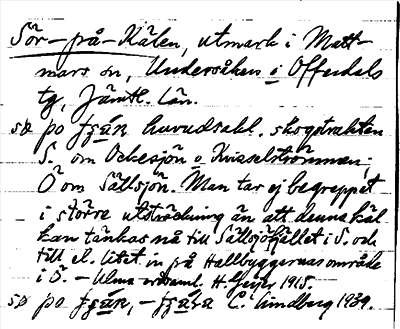 Sör-på-Kälen, utmark i Matt-
mars sn, Undersåkers o Offerdals
tg, Jämtl. län.
sɷ po huvudsakl. skogstrakten
S. om Ockesjön o Kvisselströmmen;
Ö om Sällsjön. Man tar ej begreppet
i större utsträckning än att denna käl
kan tänkas nå till Sällsjöfjället i S. och
till el. litet in på Hallbyggarnas område
i Ö. – Ulma ortsaml. H. Geijer 1918.
L. Lindberg 1939.